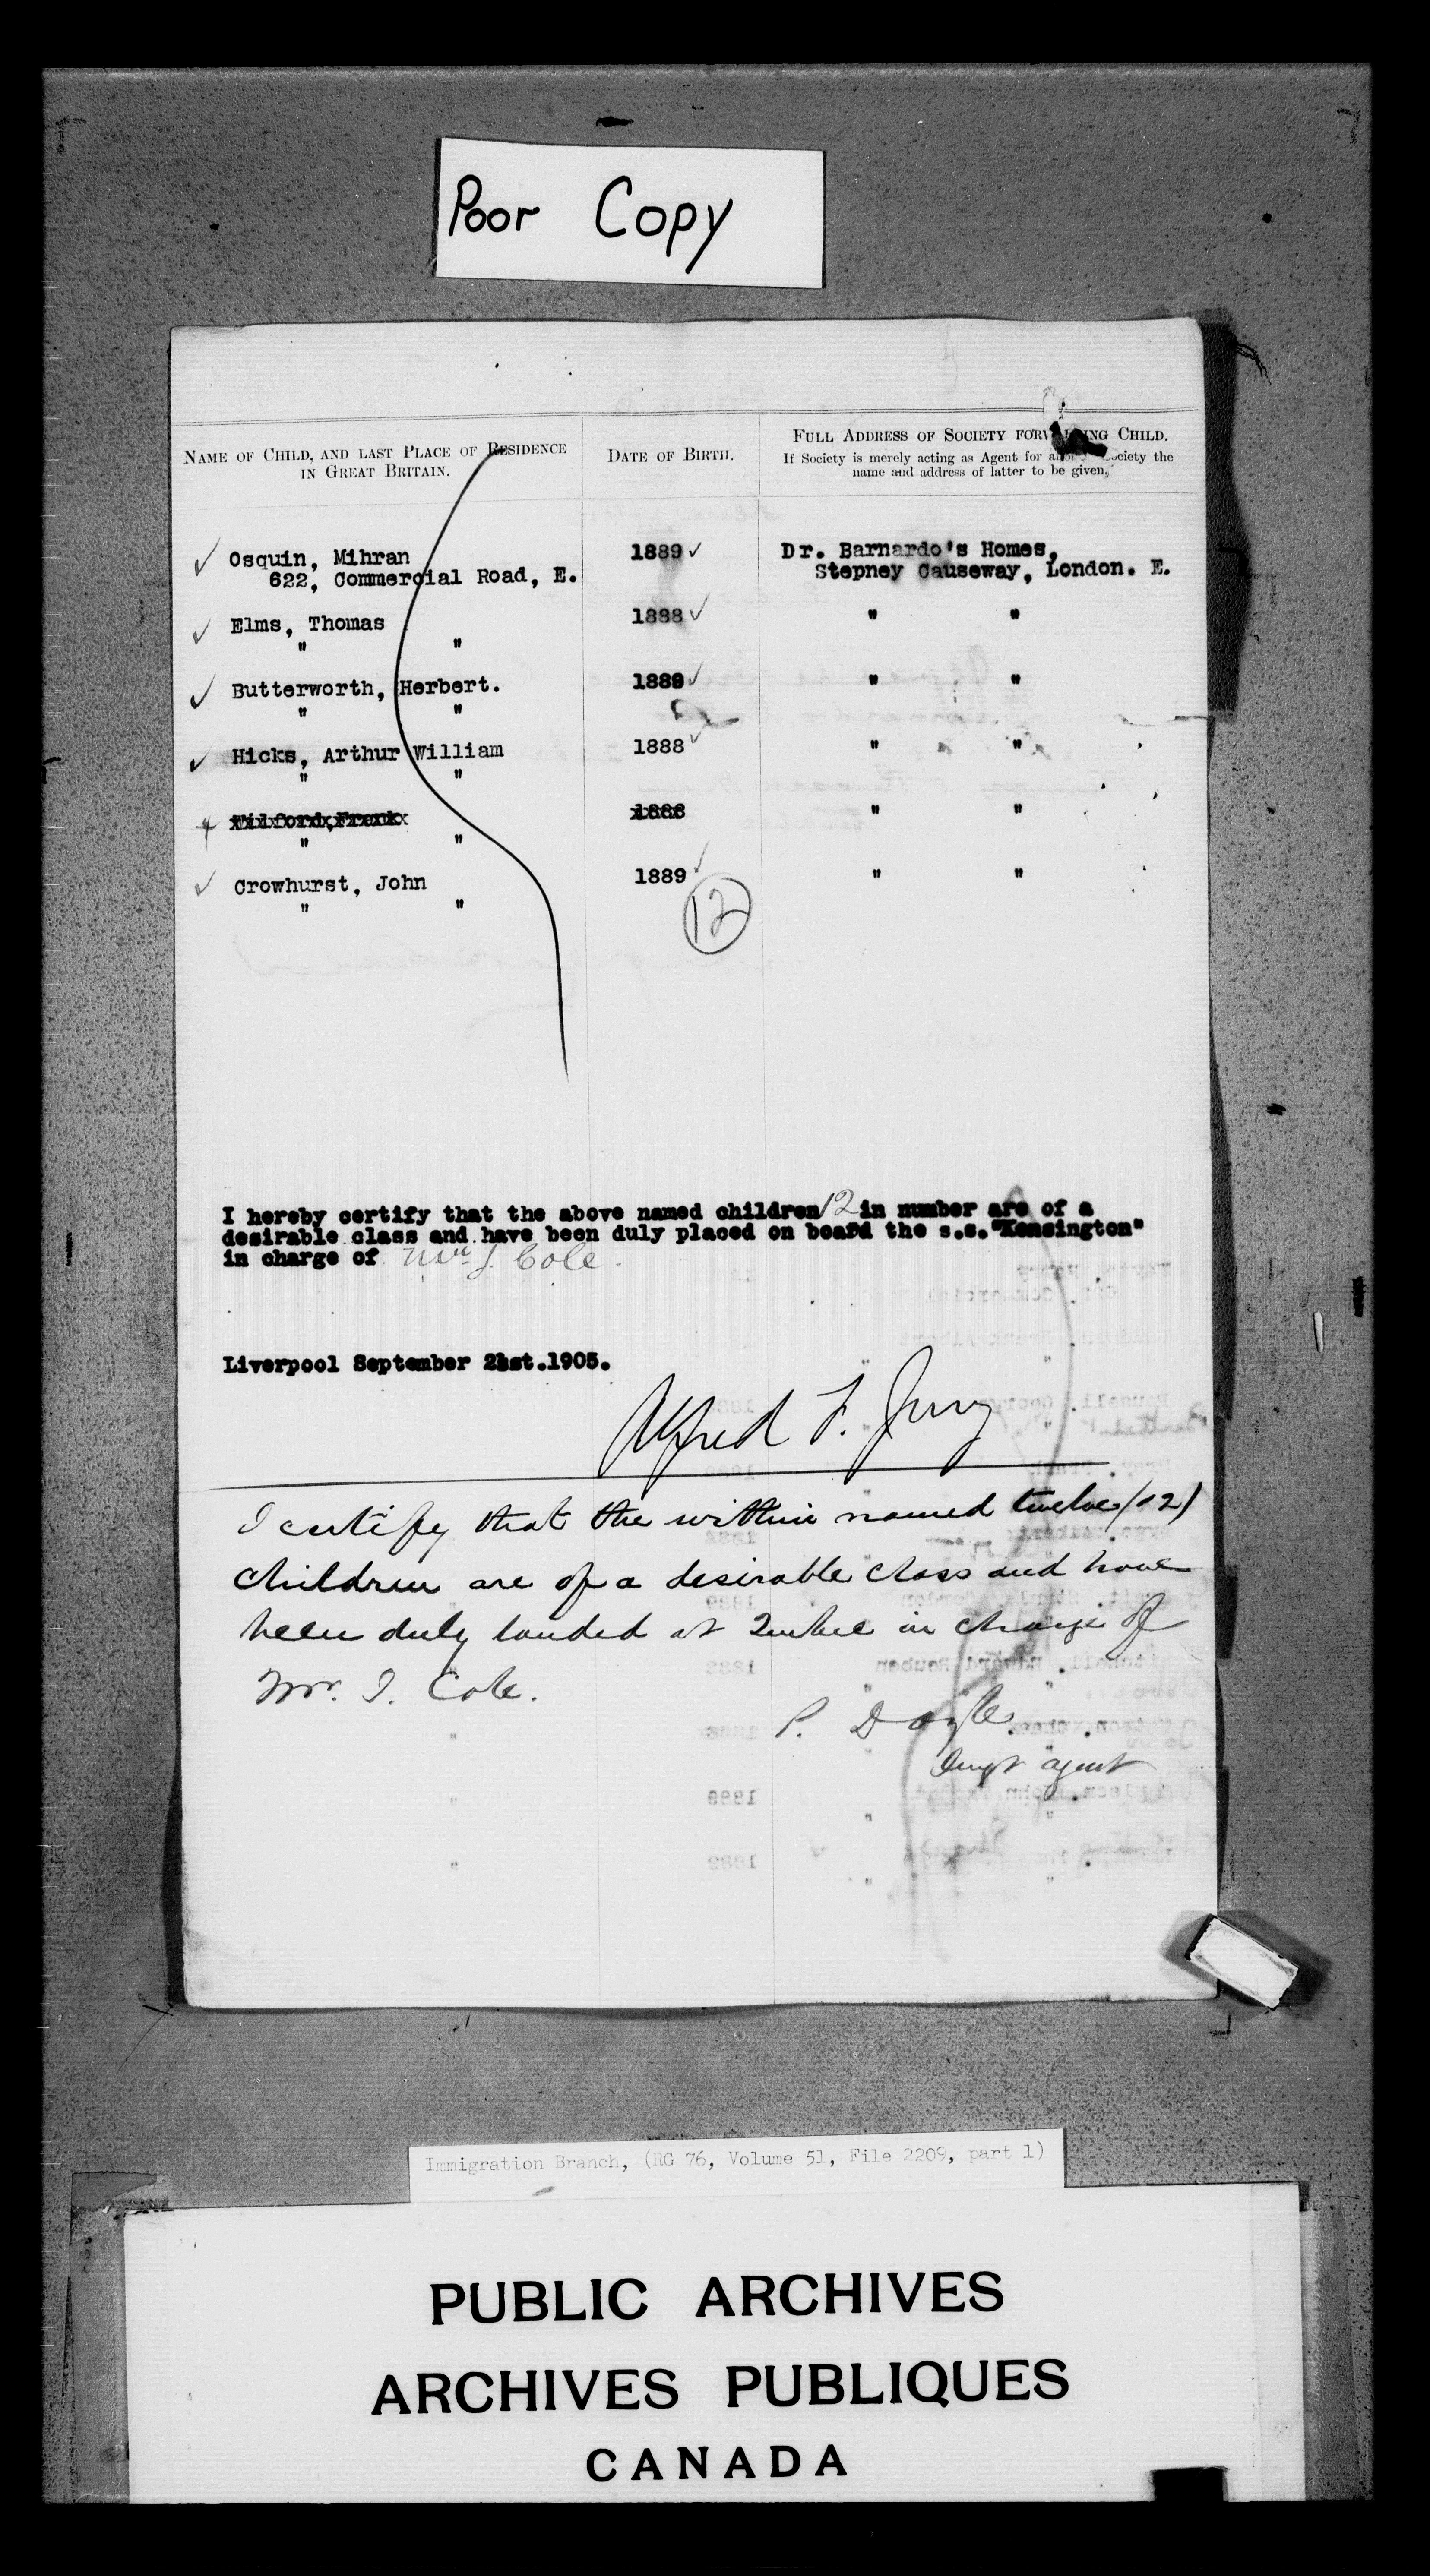 Poor Copy
NAME OF CHILD, AND LAST PLACE OF RESIDENCE
IN GREAT BRITAIN.
DATE OF BIRTH.
FULL ADDRESS OF SOCIETY FORWARDING CHILD.
If Society is merely acting as Agent for another Society the
name and address of latter to be given.
Osquin, Mihran 1889 Dr. Barnardo's Homes,
622, Commercial Road, E. Stepney Causeway, London. E.
Elms, Thomas 1888 " "
" "
Butterworth, Herbert. 1889 " "
" "
Hicks, Arthur William 1888 " "
" "
Frank 1888 " "
" "
Crowhurst, John 1889 " "
" "
12
I hereby certify that the above named children 12 in number are of a
desirable class and have been duly placed on board the s.s."Kensington"
in charge of Mr. J. Cole.
Liverpool September 21st.1905.
Alfred F. Jury
I certify that the within named twelve (12)
children are of a desirable class and have
been duly landed at Quebec in charge of
Mr. J. Cole.
P. Doyle
agent
Immigration Branch, (RG 76, Volume 51, File 2209, part 1)
PUBLIC ARCHIVES
ARCHIVES PUBLIQUES
CANADA